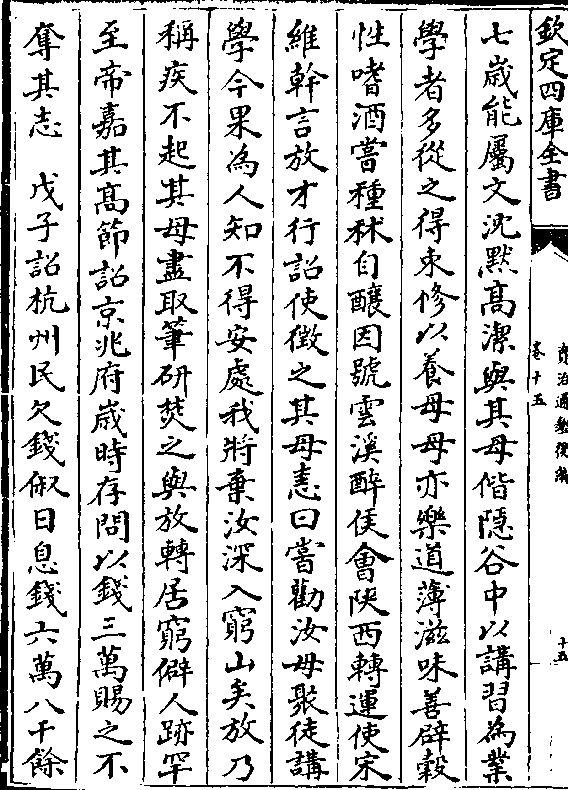 欽定四庫全書
資治通鑑後編
卷十五
十五
七嵗能屬文沈默高潔與其母偕隱谷中以講習為業
學者多從之得束修以養母母亦樂道薄滋味善辟穀
性嗜酒嘗種秫自釀因號雲溪醉侯會陜西轉運使宋
維幹言放才行詔使徴之其母恚曰嘗勸汝毋聚徒講
學今果為人知不得安處我將棄汝深入窮山矣放乃
稱疾不起其母盡取筆研焚之與放轉居窮僻人跡罕
至帝嘉其高節詔京兆府嵗時存問以錢三萬賜之不
奪其志　戊子詔杭州民欠錢俶日息錢六萬八千餘